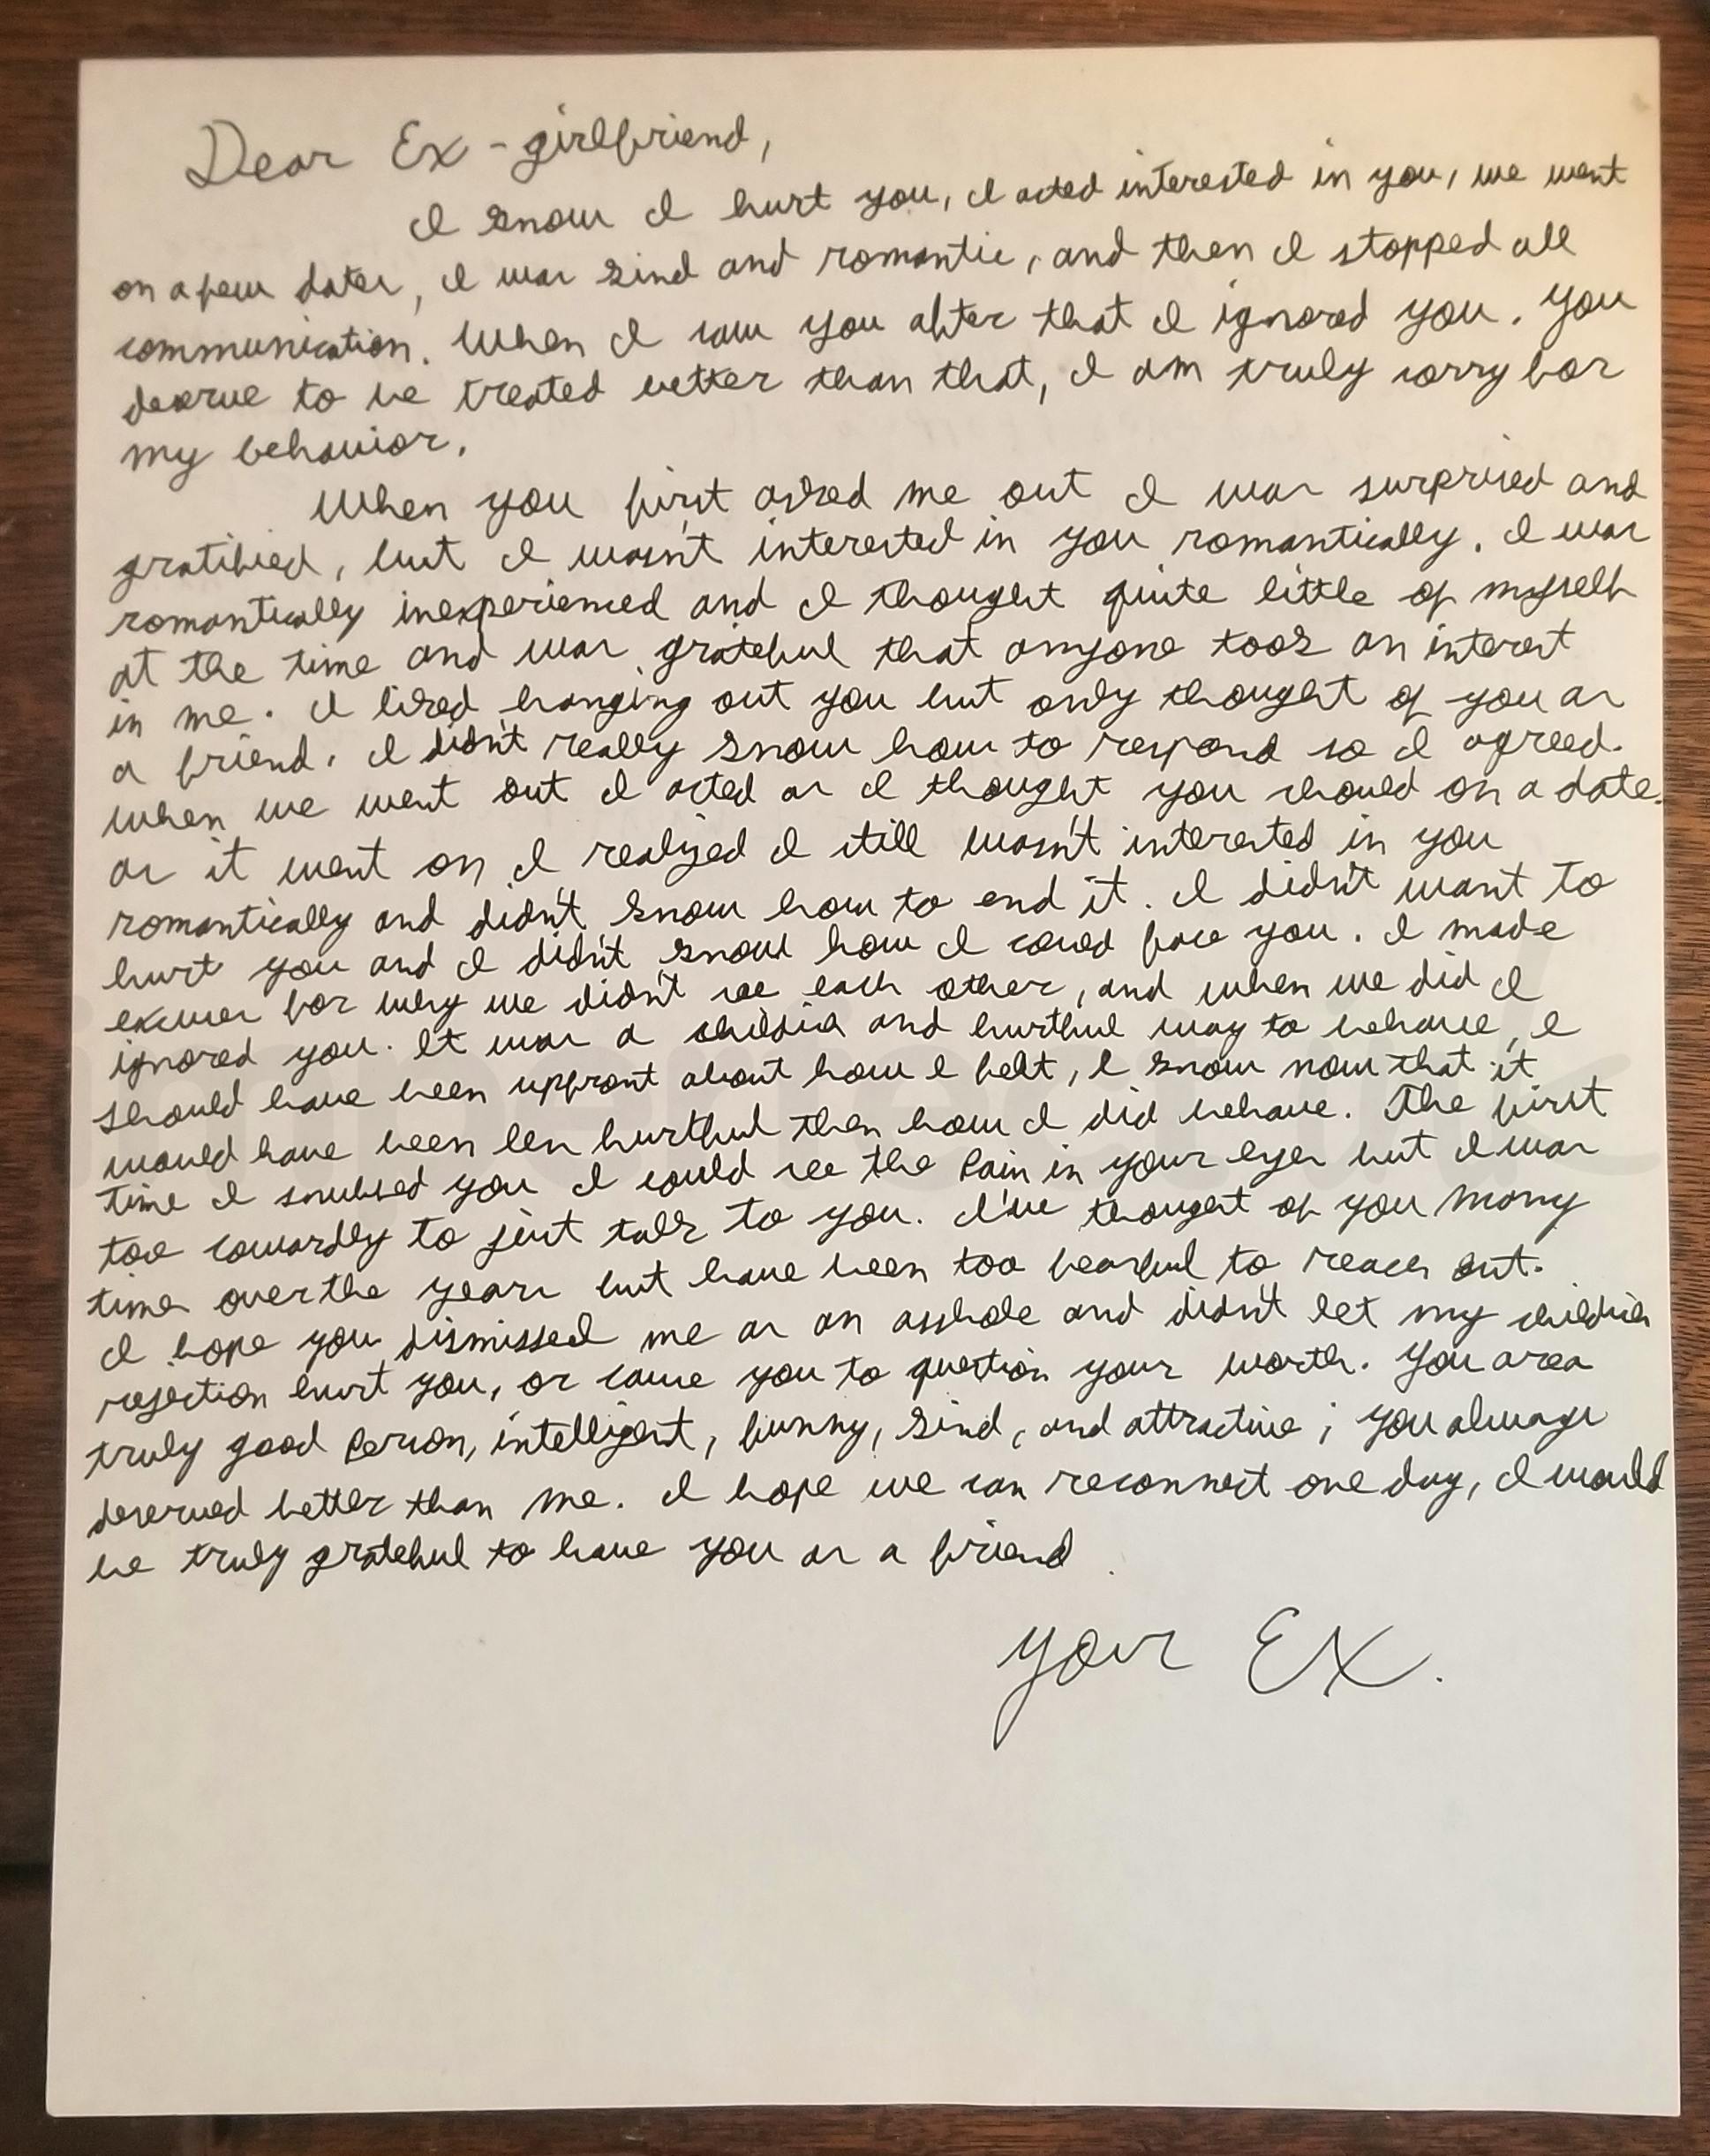 Dear Ex-girlfriend,
I know I hurt you, I acted interested in you, we went
on a few dates, I was kind and romantic, and then I stopped all
communication. When I saw you after that I ignored you. You
deserve to be treated better than that, I am truly sorry for
my behavior.
When you first asked me out I was surprised and
gratified, but I wasn't interested in you romantically. I was
romantically inexperienced and I thought quite little of myself
at the time and was grateful that anyone took an interest
in me. I liked hanging out you but only thought of you as
a friend. I didn't really know how to respond so I agreed.
when we went out I acted as I thought you should on a date.
as it went on I realized I still wasn't interested in you
romantically and didn't know how to end it. I didn't want to
hurt you and I didn't know how I could face you. I made
excuses for why we didn't see each other, and when we did I
ignored you. It was a childish and hurtful way to behave, I
should have been upfront about how I felt, I know now that it
would have been less hurtful then how I did behave. The first
time I snubbed you I could see the pain in your eyes but I was
too cowardly to just talk to you. I've thought of you many
times over the years but have been too fearful to reach out.
I hope you dismissed me as an asshole and didn't let my childish
rejection hurt you, or cause you to question your worth. You are a
truly good person, intelligent, funny, kind, and attractive; you always
deserved better than me. I hope we can reconnect one day, I would
be truly grateful to have you as a friend.
Your Ex.